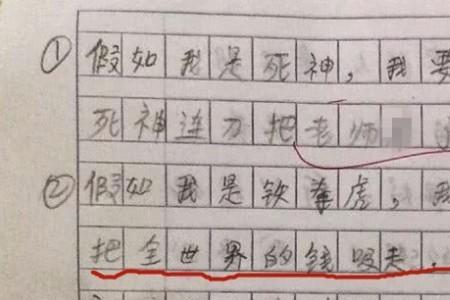 ① 假如我是死神，我要
死神连刀把老师
② 假如我是铁拳虎，我
把全世界的钱吸夫.